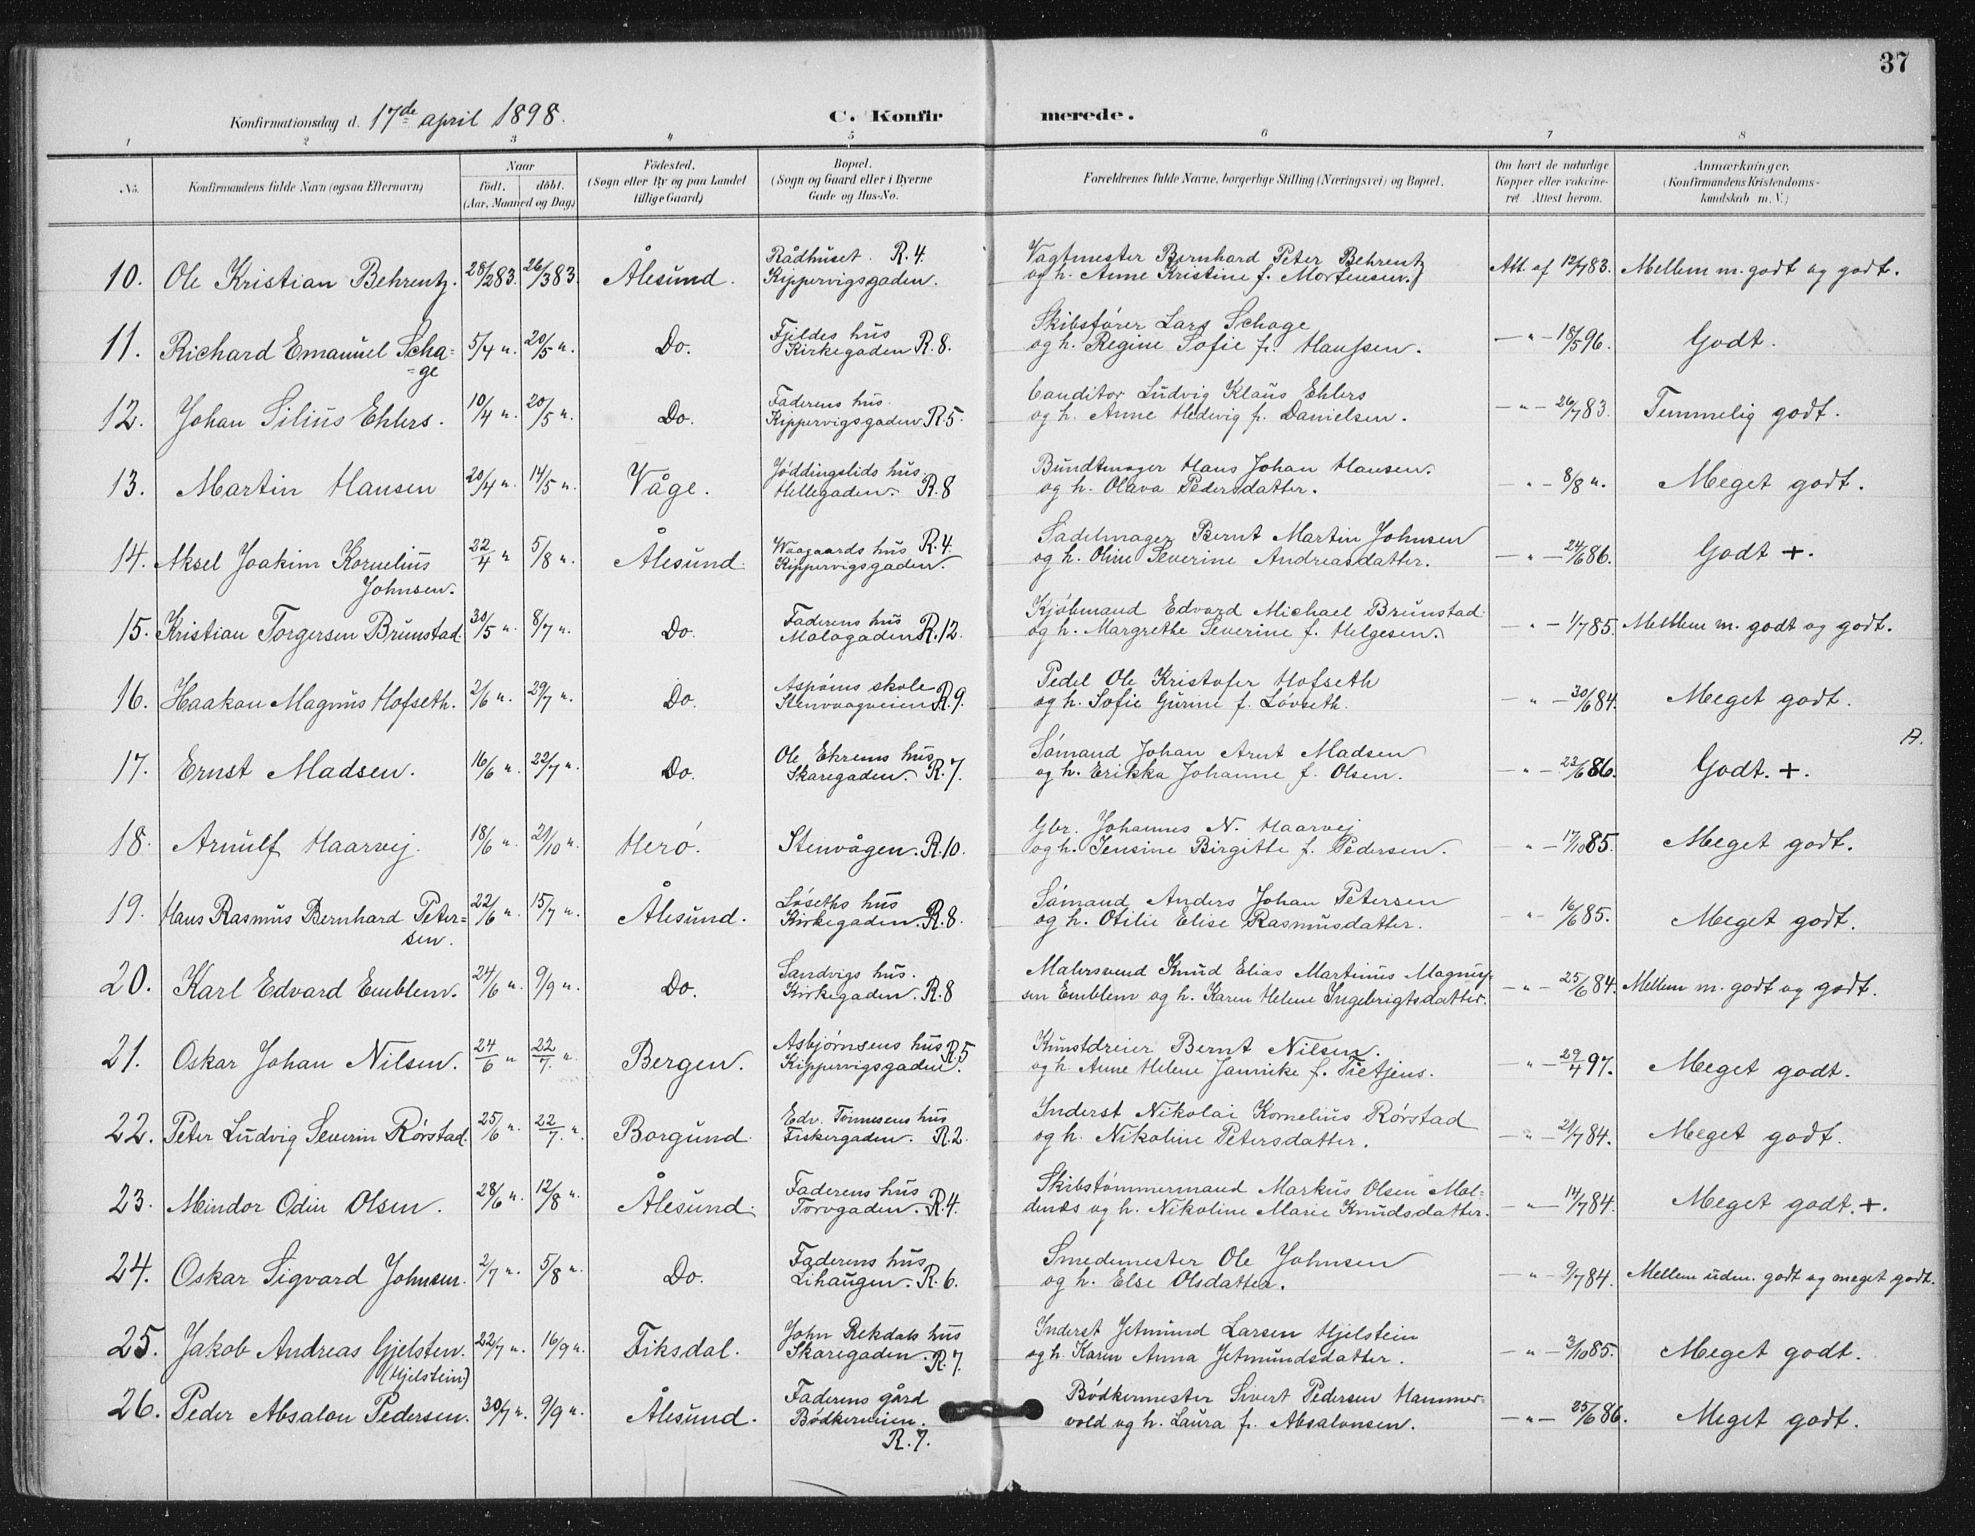 37
Konfirmationsdag d. 17de april 1898. C. Konfirmerede.
1 2 3 4 5 6 7 8
No. Konfirmandens fulde Navn (ogsaa Efternavn) Naar födt. döbt. (Aar, Maaned og Dag) Födested. (Sogn eller By og paa Landet tillige Gaard) Bopæl. (Sogn og Gaard eller i Byerne Gade og Hus-No. Forældrenes fulde Navne, borgerlige Stilling (Næringsvei) og Bopæl. Om havt de naturlige Kopper eller vakcineret. Attest herom. Anmærkninger. (Konfirmandens Kristendomskundskab m. V.)
10. Ole Kristian Behrentz. 28/2 83. 26/3 83. Ålesund. Rådhuset. R. 4. Kippervigsgaden. Vagtmester Bernhard Peter Behrentz og h. Anne Kristine f. Mortensen. Att. af 12/7 83. Mellem m. godt og godt.
11. Richard Emanuel Scha-=ge 5/4 " 20/5 ". Do. Fjeldes hus Kirkegaden R. 8. Skibsfører Lars Schage og h. Regine Sofie f. Hanssen. — " — 18/5 96. Godt.
12. Johan Silius Ehlers. 10/4 " 20/5 " Do. Faderens hus. Kippervigsgaden R. 5. Conditor Ludvig Klaus Ehlers og h. Anne Hedevig f. Danielsen. — " — 26/7 83. Temmelig godt.
13. Martin Hansen 20/4 " 14/5 " Våge. Jøddingslids hus. Hellegaden. R. 8 Bundtmager Hans Johan Hansen. og h. Olava Pedersdatter. — " — 8/8 ". Meget godt.
14. Aksel Joakim Kornelius Johnsen. 22/4 " 5/8 ". Ålesund. Waagaards hus R. 4. Kippervigsgaden. Sadelmager Bernt Martin Johnsen og h. Oline Severine Andreasdatter. — " — 24/6 86. Godt +.
15. Kristian Torgersen Brunstad. 30/5 ". 8/7 ". Do. Faderens hus Mologaden R. 12. Kjøbmand Edvard Michael Brunstad. og h. Margrethe Severine f. Helgesen. — " — 1/7 85. Mellem m. godt og godt.
16. Haakon Magnus Hofseth. 2/6 ". 29/7 ". Do. Aspøens skole Stenvaagveien R. 9. Pedel Ole Kristofer Hofseth og h. Sofie Gurine f. Løvseth. — " — 30/6 84. Meget godt.
17. Ernst Madsen. 16/6 ". 22/7 ". Do. Ole Ekrems hus Skaregaden. R. 7. Sømand Johan Arnt Madsen og h. Erikka Johanne f. Olsen. — " — 23/6 86. Godt. +. A.
18. Arnulf Haarvej. 18/6 ". 21/10 ". Herø. Stenvågen. R. 10. Gbr. Johannes N. Haarvej og h. Jensine Birgitte f. Pedersen. — " — 17/10 85. Meget godt.
19. Hans Rasmus Bernhard Peter=sen. 22/6 ". 15/7 ". Ålesund. Løseths hus Kirkegaden. R. 8. Sømand Anders Johan Petersen og h. Otilie Elise Rasmusdatter. — " — 16/6 85. Meget godt.
20. Karl Edvard Emblem. 24/6 ". 9/9 ". Do. Sandvigs hus. Kirkegaden. R. 8 Malersvend Knud Elias Martinus Magnussen Emblem og h. Karen Helene Ingebrigtsdatter. — " — 25/6 84. Mellem m. godt og godt.
21. Oskar Johan Nilsen. 24/6 " 22/7 ". Bergen. Asbjørnsens hus R. 5 Kippervigsgaden. Kunstdreier Bernt Nilsen. og h. Anne Helene Jannike f. Tietjens. — " — 29/4 97. Meget godt.
22. Peter Ludvig Severin Rørstad. 25/6 ". 22/7 ". Borgund. Edv. Tønnesens hus Fiskergaden. R. 2. Inderst Nikolai Kornelius Rørstad og h. Nikoline Petersdatter. — " — 21/7 84. Meget godt.
23. Mindor Odin Olsen. 28/6 ". 12/8 ". Ålesund. Faderens hus Torvgaden. R. 4. Skibstømmermand Markus Olsen Mol=denæs og h. Nikoline Marie Knudsdatter. — " — 14/7 84. Meget godt. +.
24. Oskar Sigvard Johnsen. 2/7 ". 5/8 ". Do. Faderens hus Lihaugen. R. 6. Smedemester Ole Johnsen og h. Else Olsdatter. — " — 9/7 84. Mellem udm. godt og meget godt.
25. Jakob Andreas Gjelsten. (Hjelstein) 22/7 ". 16/9 ". Fiksdal. John Rekdals hus Skaregaden. R. 7. Inderst Jetmund Larsen Hjelstein og h. Karen Anna Jetmundsdatter. — " — 3/10 85. Meget godt.
26. Peder Absalon Pedersen. 30/7 ". 9/9 ". Ålesund. Faderens gård Bødkerveien. R. 7. Bødkermester Sivert Pedersen Hammer-vold og h. Laura f. Absalonsen. — " — 25/6 86. Meget godt.